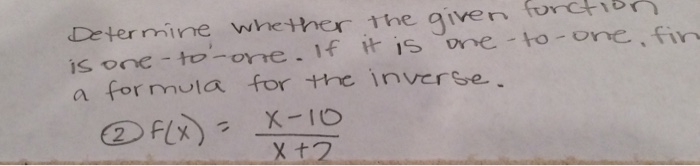 Determine whether the given function
is one-to-one. If it is one-to-one, fin
a formula for the inverse.
② f(x) = x-10
x+2